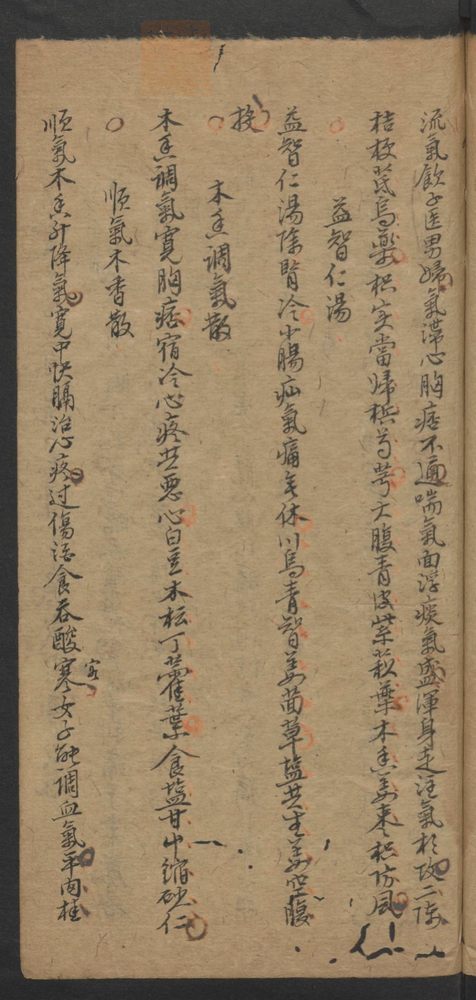 流氣飲子医男婦氣滞心胸痞不通喘氣面浮痰氣盛渾身走注氣相攻二陳
桔梗芪烏藥枳实當归梹芍芎大腹青皮紫苏葉木香姜枣枳防風
益智仁湯
益智仁湯除腎冷小腸疝氣痛無休川烏青智姜茴草塩共生姜空腹
投
木香調氣散
木香調氣寬胸痞宿冷心疼共悪心白豆木松丁藿葉食塩甘中縮砂仁
順氣木香散
順氣木香升降氣寬中快膈治心疼过傷活食吞酸寒客女子能調血氣平肉桂